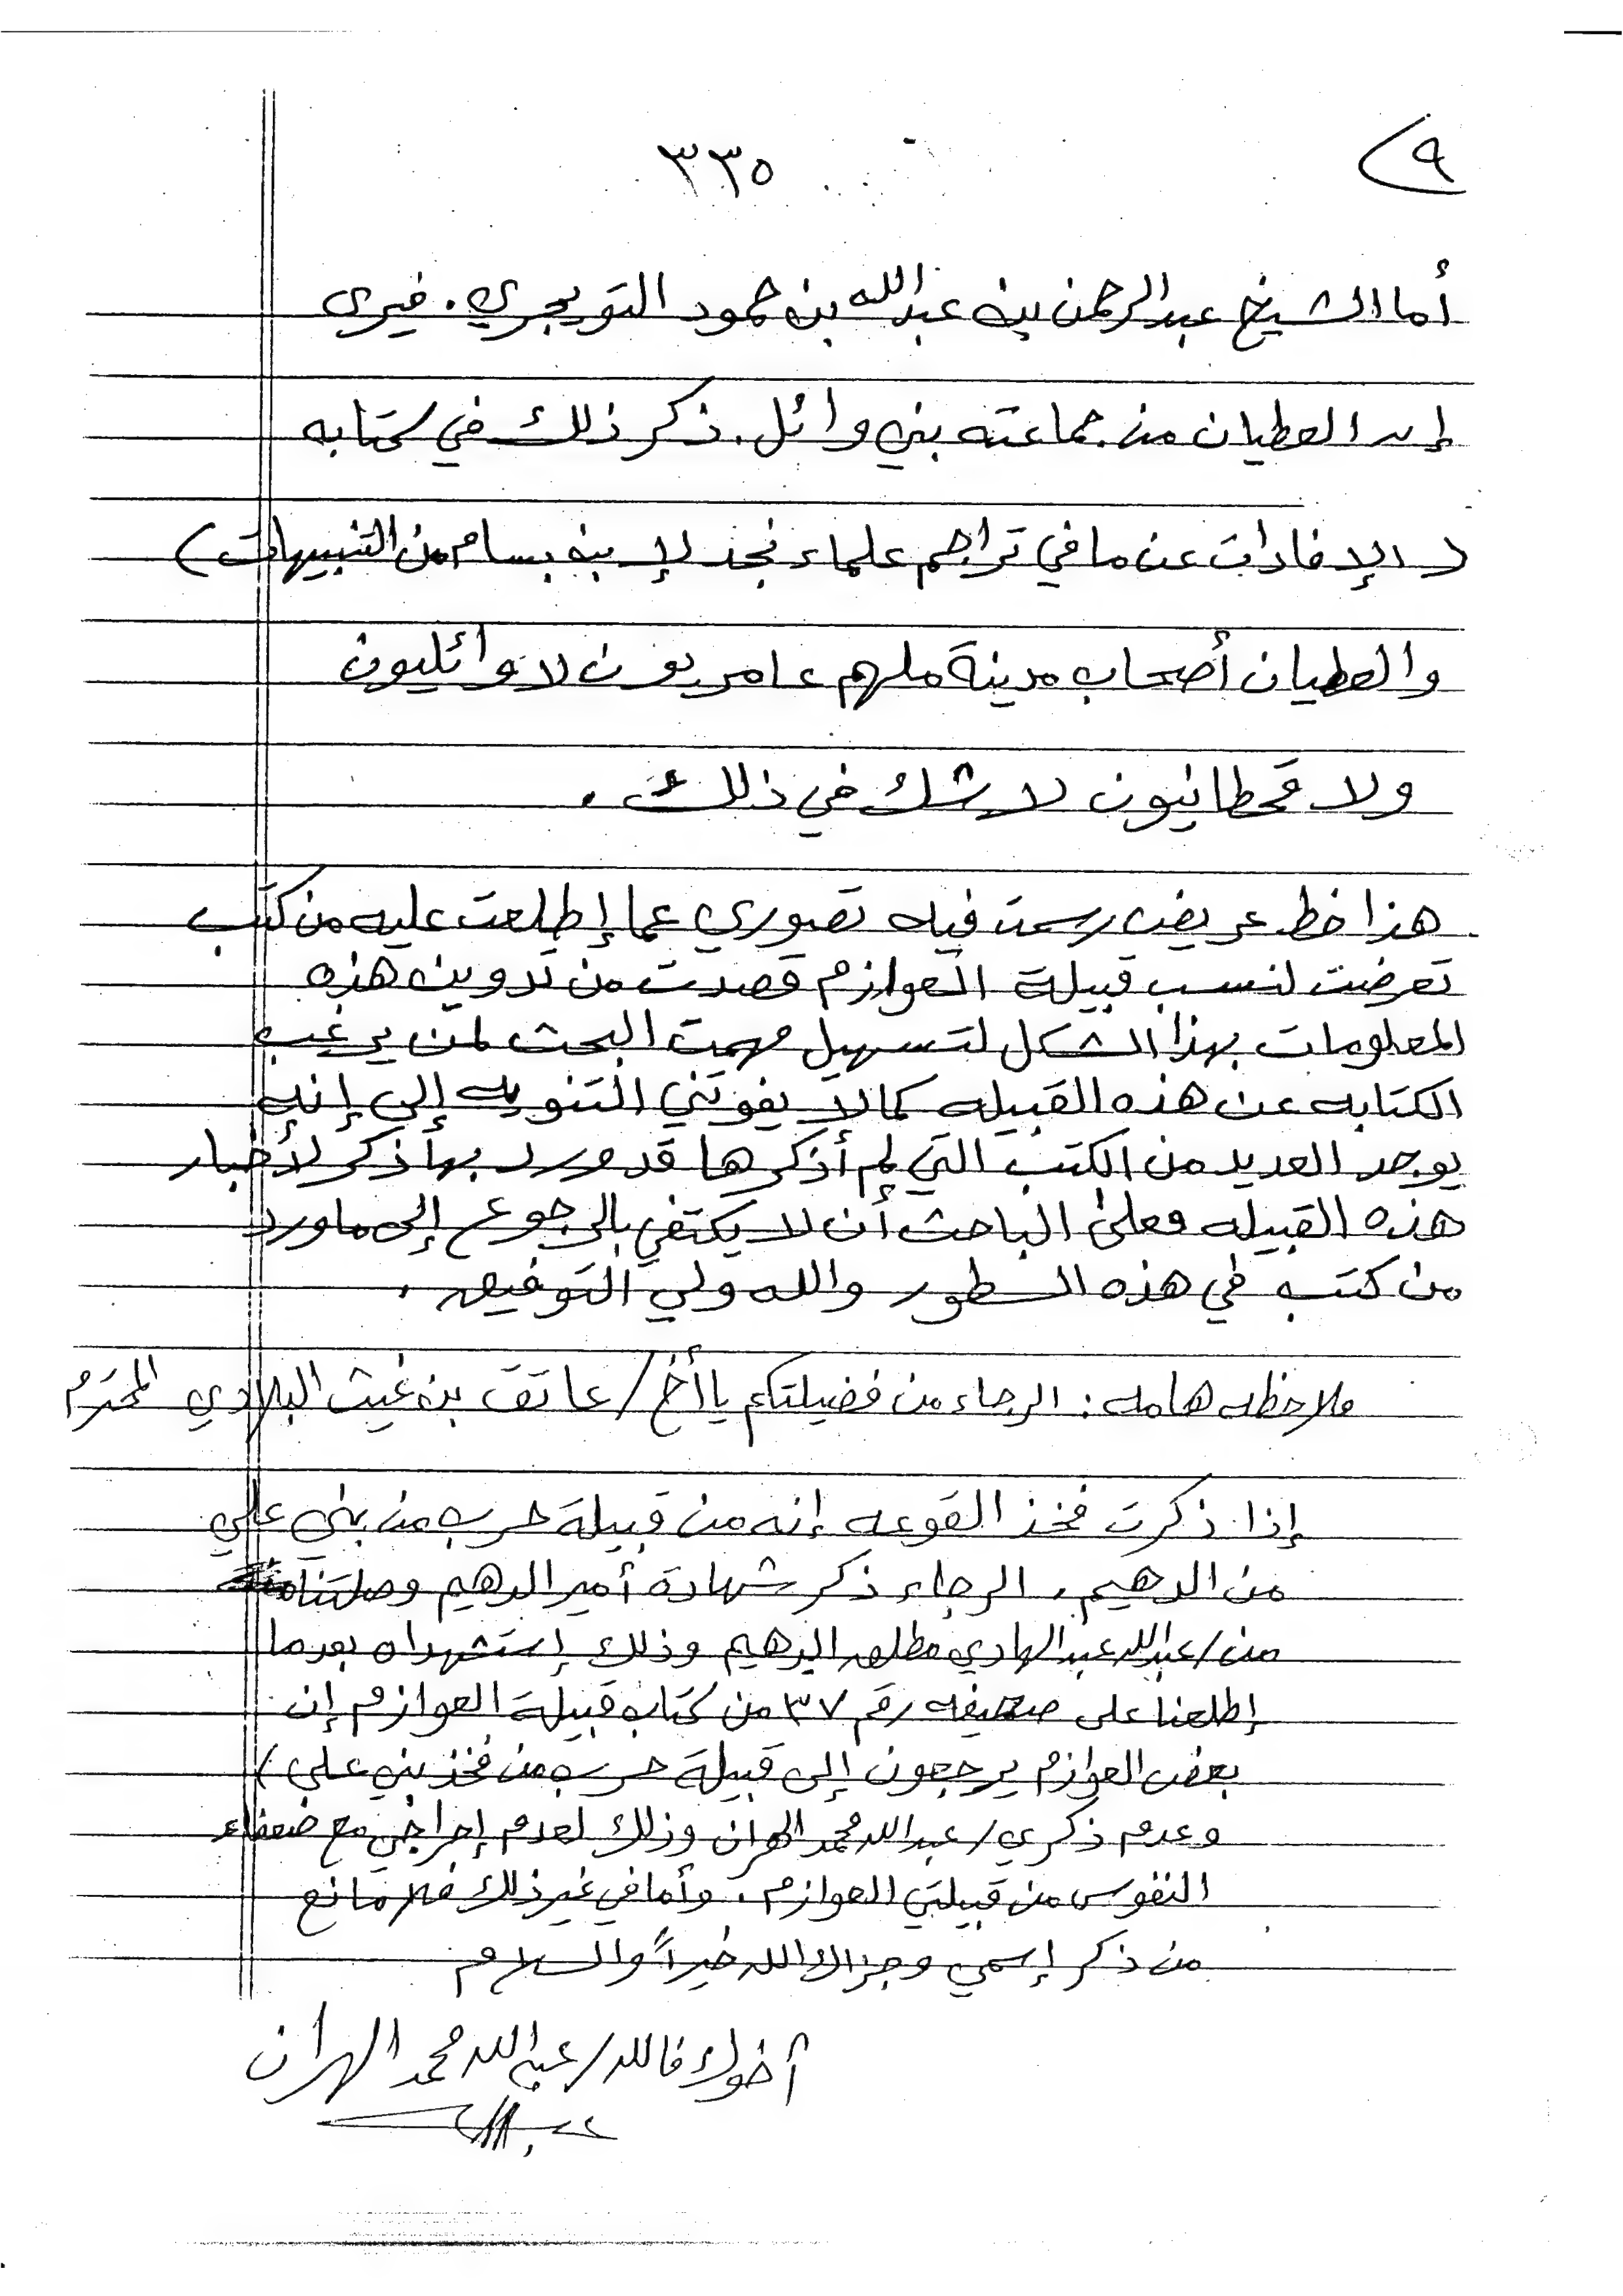 ٩
٣٣٥
أما الشيخ عبدالرحمن بن عبدالله بن حمود التويجري. فيرى
إن العطيان من جماعته بني وائل. ذكر ذلك في كتابه
( الإفادات عن ما في تراجم علماء نجد لإبن بسام من التنبيهات )
والعطيان أصحاب مدينة ملهم عامريون لا وائليون
ولا قحطانيون لا شك في ذلك .
هذا خط عريض رسمت فيه تصوري عما إطلعت عليه من كتب
تعرضت لنسب قبيلة العوازم قصدت من تدوين هذه
المعلومات بهذا الشكل لتسهيل مهمت البحث لمن يرغب
الكتابه عن هذه القبيله كما لا يفوتني التنويه إلى إنه
يوجد العديد من الكتب التي لم أذكرها قد ورد بها ذكر لأخبار
هذه القبيله فعلى الباحث أن لا يكتفي بالرجوع إلى ماورد
من كتب في هذه السطور والله ولي التوفيق .
ملاحظه هامه : الرجاء من فضيلتكم يا أخ / عاتق بن غيث البلادي المحترم
إذا ذكرت فخذ القوعه إنه من قبيلة حرب من بني علي
من الدهيم . الرجاء ذكر شهادة أمير الدهيم وصلتنا
من / عبدالله عبدالهادي مطلق الدهيم وذلك إستشهداه بعدما
إطلعنا على صحيفه رقم ٣٧ من كتاب قبيلة العوازم إن
بعض العوازم يرجعون إلى قبيلة حرب من فخذ بني علي )
وعدم ذكري / عبدالله محمد الهران وذلك لعدم إحراجي مع ضعفاء
النفوس من قبيلتي العوازم . وأما في غير ذلك فلا مانع
من ذكر إسمي وجزاك الله خيراً والسلام
أخوك فالله / عبدالله محمد الهران